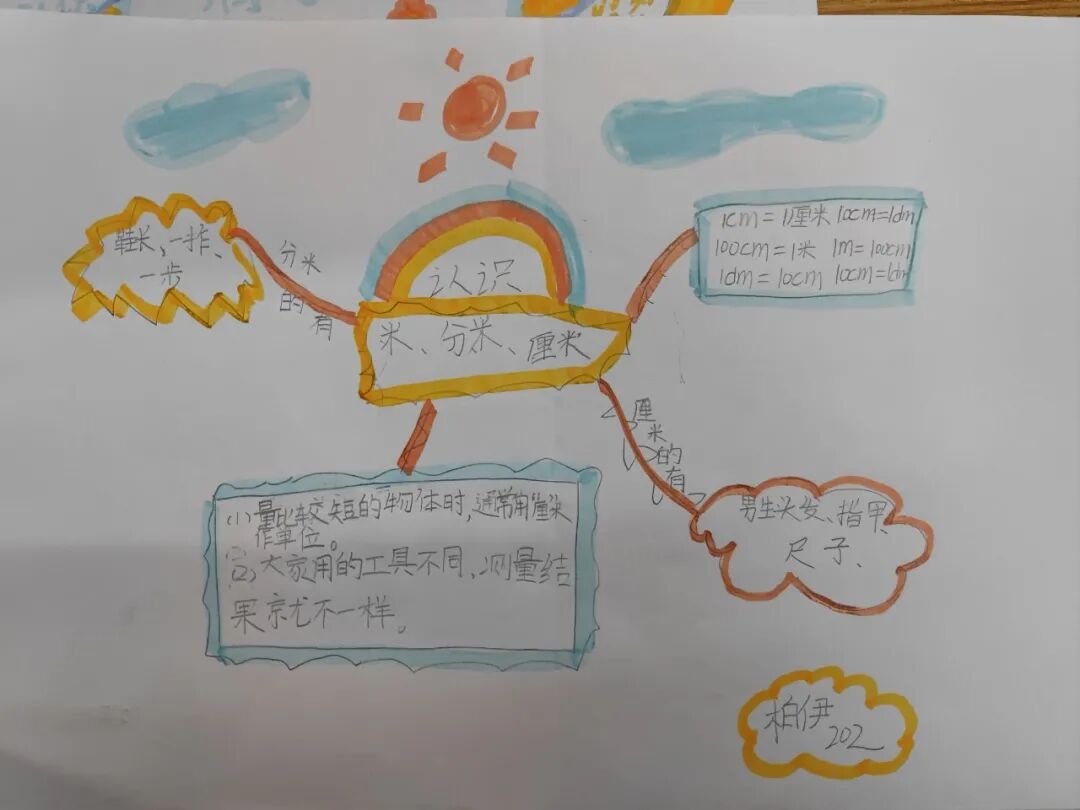 认识
米、分米、厘米
分米的有
鞋长、一拃、
一步
1cm=1厘米 10cm=1dm
100cm=1米 1m=100cm
1dm=10cm 10cm=1dm
厘米的有
男生头发、指甲、
尺子、
(1)量比较短的物体时,通常用厘米
作单位。
(2)大家用的工具不同、测量结
果就不一样。
柏伊
202